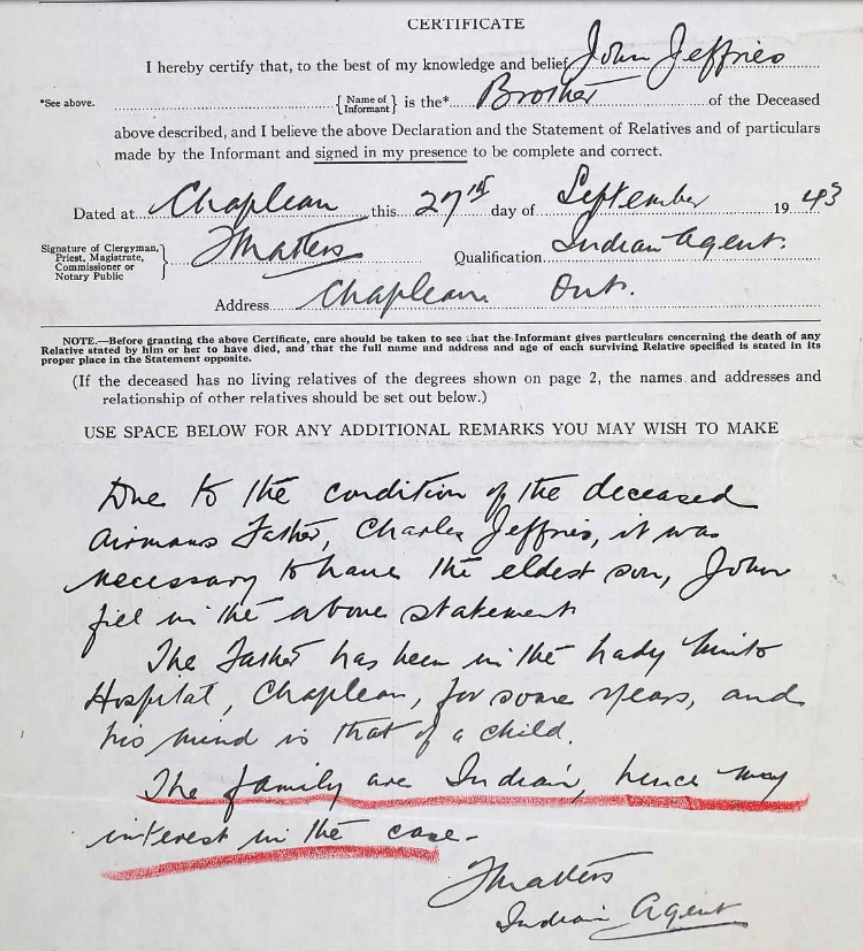 CERTIFICATE
I hereby certify that, to the best of my knowledge and belief, John Jeffries
*See above. {Name of Informant} is the* Brother of the Deceased
above described, and I believe the above Declaration and the Statement of Relatives and of particulars
made by the Informant and signed in my presence to be complete and correct.
Dated at Chapleau this 27th day of September 1943
Signature of Clergyman, Priest, Magistrate, Commissioner or Notary Public } FMatters Qualification Indian Agent.
Address Chapleau Ont.
NOTE.—Before granting the above Certificate, care should be taken to see that the Informant gives particulars concerning the death of any
Relative stated by him or her to have died, and that the full name and address and age of each surviving Relative specified is stated in its
proper place in the Statement opposite.
(If the deceased has no living relatives of the degrees shown on page 2, the names and addresses and
relationship of other relatives should be set out below.)
USE SPACE BELOW FOR ANY ADDITIONAL REMARKS YOU MAY WISH TO MAKE
Due to the condition of the deceased
airmans Father, Charles Jeffries, it was
necessary to have the eldest son, John
fill in the above statement
The Father has been in the Lady Minto
Hospital, Chapleau, for some years, and
his mind is that of a child.
The family are Indian, hence my
interest in the case-
FMatters
Indian Agent